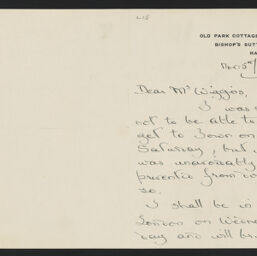 L15
OLD PARK COTTAGE
BISHOP'S SUTT
HA
Nov: 5th/
Dear Mr Wiggins,
I was
not to be able to
get to Town on
Saturday, but
was unavoidably
prevented from
so.
I shall be in
London on Wednes
day and will br